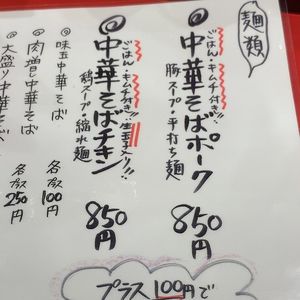 麺類
ごはん・キムチ付き!!
◎中華そばポーク
豚スープ・平打ち麺
850円
ごはん・キムチ付き!!
◎中華そばチキン
鶏スープ・縮れ麺
850円
◎味玉中華そば
各プラス100円
◎肉増し中華そば
◎大盛り中華そば
各プラス250円
プラス100円で